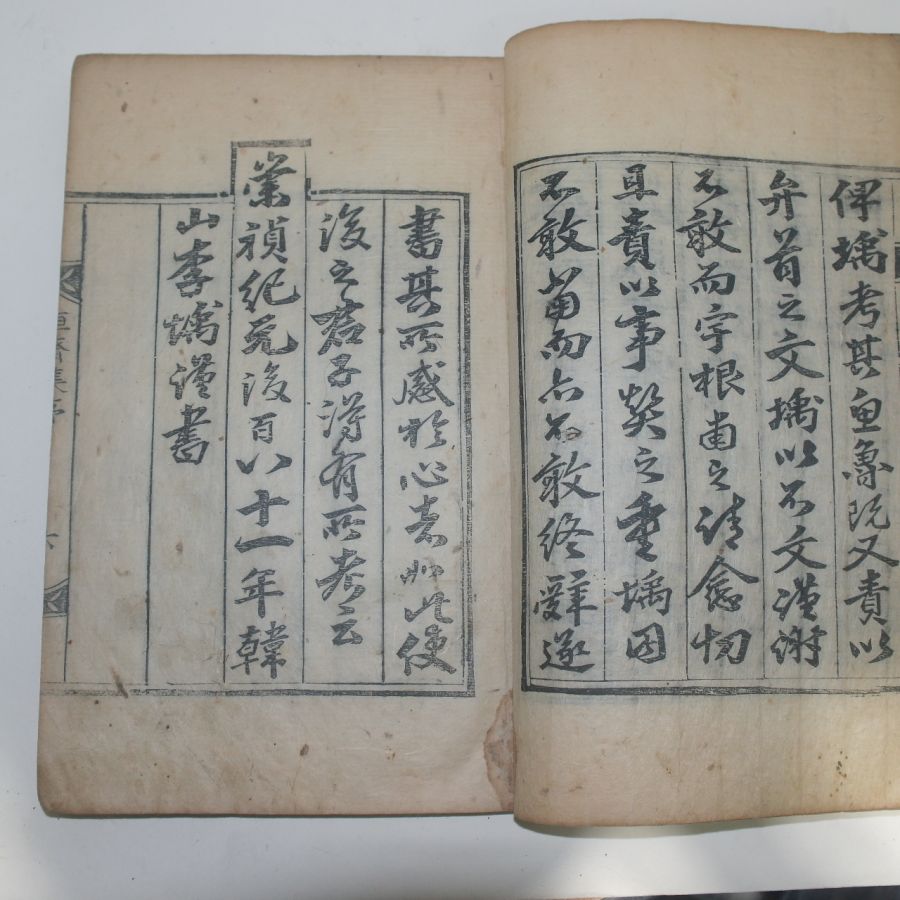 俾㙖考其魚魯旣又責以
弁首之文㙖以不文謹謝
不敢而宇根甫之請愈切
且責以事契之重㙖因
不敢當而亦不敢終辭遂
書其所感於心者如此使
後之君子得有所考云
崇禎紀元後百八十一年韓
山李㙖謹書
集序